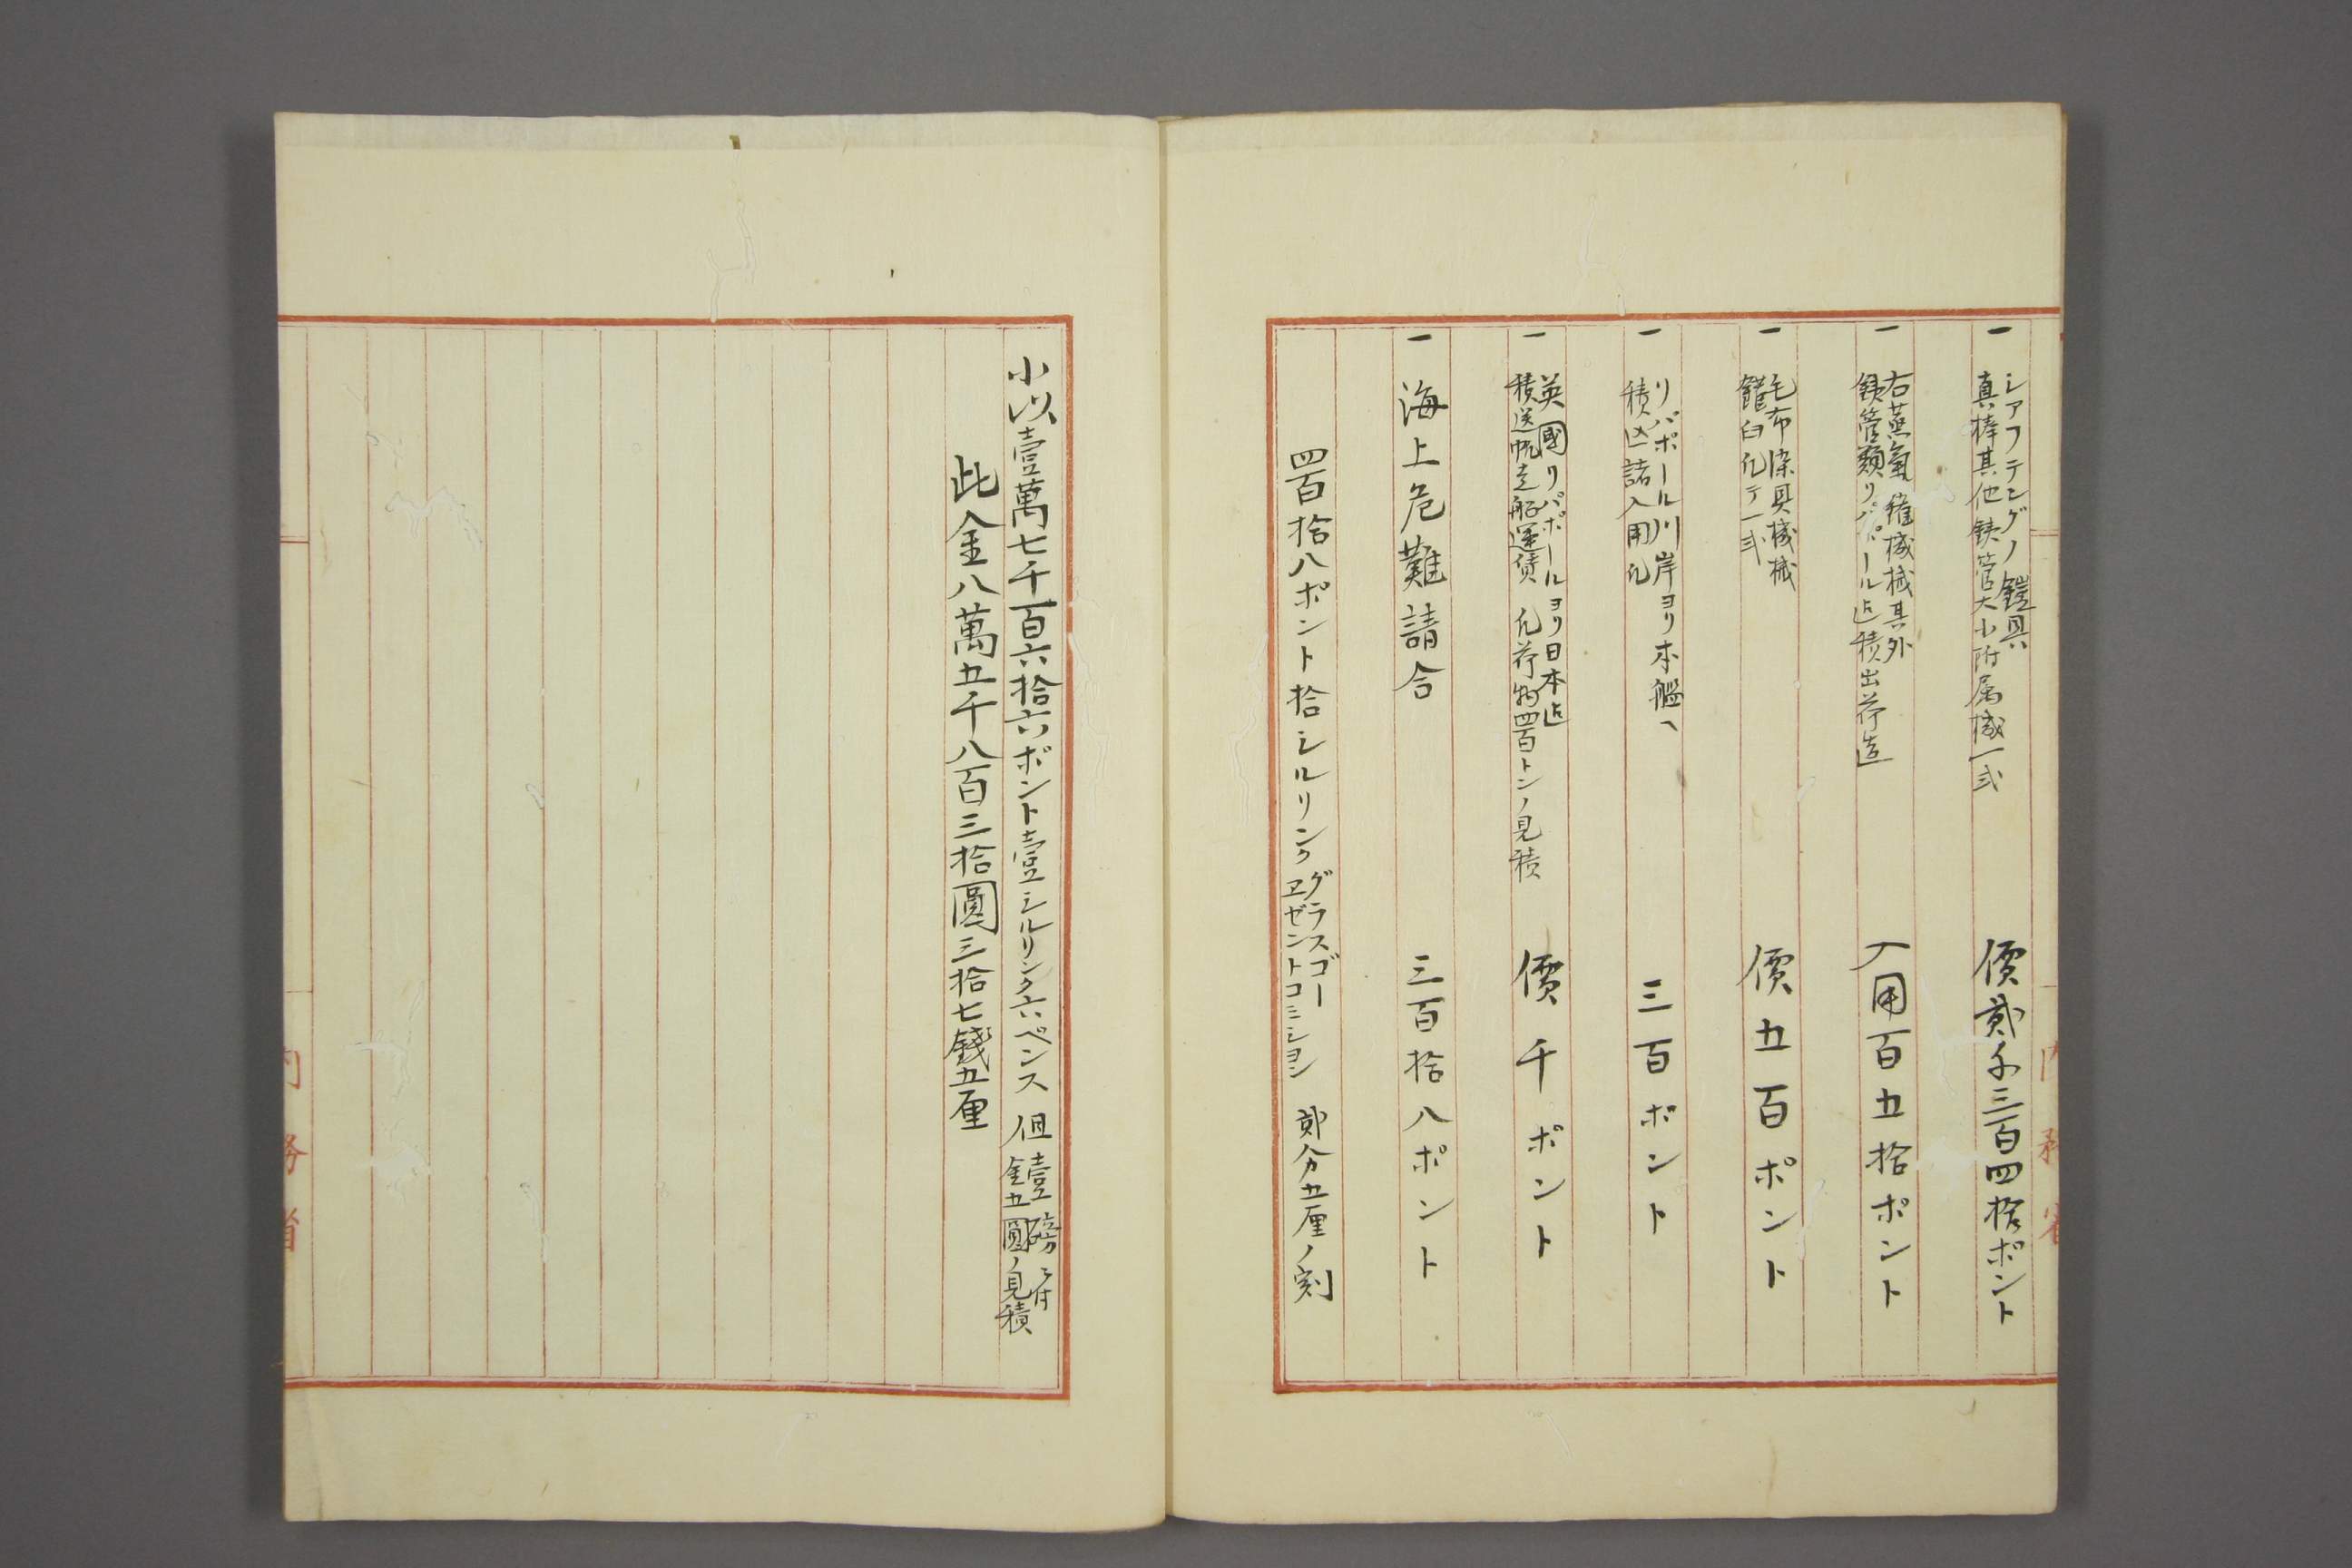 一 シアフテングノ鎧具
真棒其他鉄管大小附属機一式
價貮千三百四拾ポント
一 右蒸氣罐機械其外
鉄管類リバポール迠積出荷造
入用百五拾ポント
一 毛布染具機械
鑵臼凡テ一式
價五百ポント
一 リバポール川岸ヨリ本艦へ
積込諸入用凡
三百ポント
一 英國リバポールヨリ日本迠
積送帆走舩運賃 凡荷物四百トンノ見積
價千ポント
一 海上危難請合
三百拾八ポント
四百拾八ポント拾シルリンク
グラスゴー
ヱゼントコミシヨン
貮分五厘ノ割
小以壹萬七千百六拾六ポント壹シルリンク六ペンス
但壹磅ニ付
金五圓ノ見積
此金八萬五千八百三拾圓三拾七錢五厘
内務省